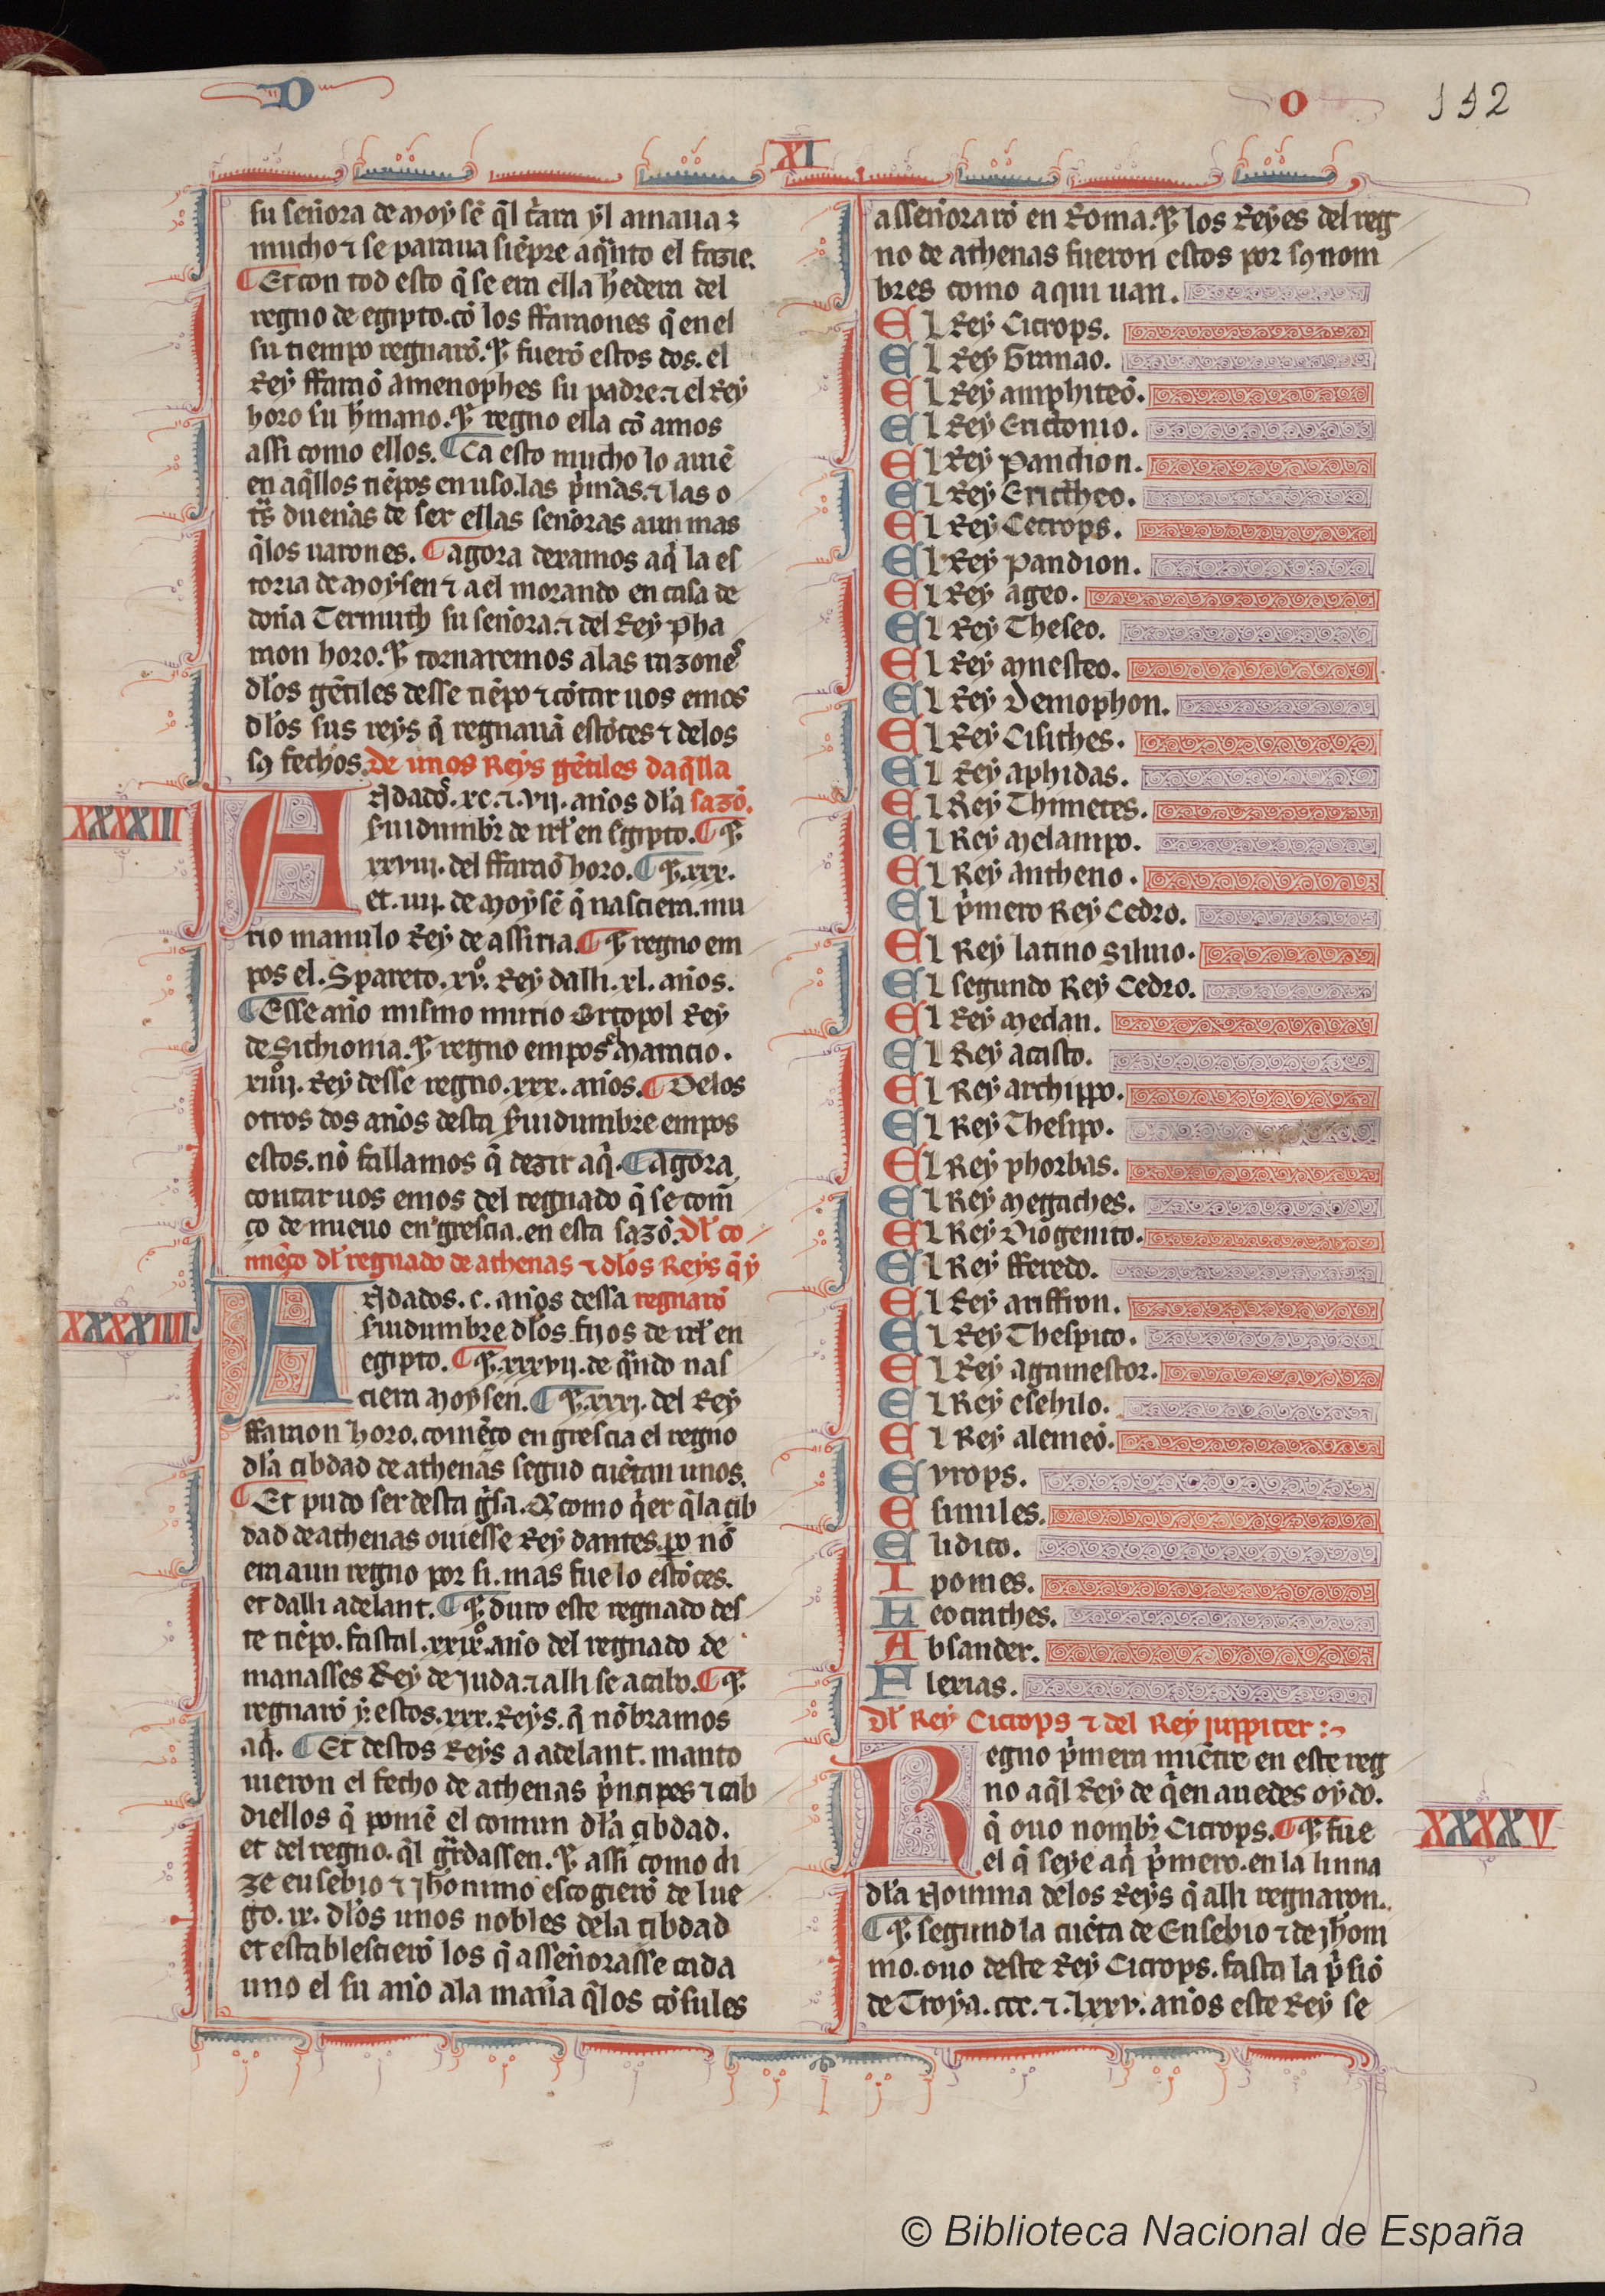 D
O
112
XI
su señora de moysẽ q̃l cͥara yl amaua ⁊
mucho ⁊ se paraua siẽpre aq̃nto el fazie.
¶Et con tod esto q̃ se era ella h̃edera del
regno de egipto. cõ los ffaraones q̃ en el
su tiempo regnarõ. ⁊ fuerõ estos dos. el
Rey ffaraõ amenophes su padre. ⁊ el Rey
horo su h̃mano. ⁊ regno ella cõ amos
assi como ellos. ¶Ca esto mucho lo auiẽ
en aq̃llos tiẽpos en uso. las p̃miãs. ⁊ las o
tͣs duenãs de ser ellas senõras aun mas
q̃los uarones. ¶agora dexamos aq̃ la es
toria de moysen ⁊ a el morando en casa de
doña Termuth su señora. ⁊ del Rey pha
raon horo. ⁊ tornaremos alas razones
dl̃os gẽtiles desse tiẽpo ⁊ cõtar uos emos
dl̃os sus reys q̃ regnauã estõces ⁊ delos
sꝯ fechos. De unos Reys gẽtiles daq̃lla
sazõ.
XXXXIII
Adadõ. xc. ⁊. vij. años dl̃a
s̃uidumbͬ de isrl̃ en Egipto. ¶⁊
xxviij. del ffaraõ horo. ¶⁊. xxx.
et. iiij. de moysẽ q̃ nasciera. mu
rio manulo Rey de assiria. ¶⁊ regno em
pos el. Spareto. xvͦ. Rey dalli. xl. años.
¶Esse año mismo murio Ortopol Rey
de Sichionia. ⁊ regno empos el Maracio.
xiiijͦ. Rey desse regno. xxx. años. ¶Delos
otros dos años desta s̃uidumbre empos
estos. nõ fallamos q̃ dezir aq̃. ¶agora
contar uos emos del regnado q̃ se com̃
ço de nueuo en grescia. en esta sazõ. Dl̃ co
miẽço dl̃ regnado de athenas ⁊ dl̃os Reys q̃ y
regnarõ
XXXXIIII
Adados. c. años dessa
s̃uidumbre dl̃os fijos de isrl̃ en
egipto. ¶⁊. xxxvij. de qͣndo nas
ciera moysen. ¶⁊. xxxj. del Rey
ffaraon horo. comẽço en grescia el regno
dl̃a cibdad de athenas segũd cuẽtan unos.
¶Et pudo ser desta g̃sa. Q̃ como q̃er q̃ la cib
dad de athenas ouiesse Rey dantes. ꝑo nõ
era aun regno por si. mas fue lo estõces.
et dalli adelant. ¶⁊ duro este regnado des
te tiẽpo. fastal. xxixͦ. año del regnado de
manasses Rey de Juda. ⁊ alli se acabo. ¶⁊
regnarõ y estos. xxx. Reys. q̃ nõbramos
aq̃. ¶Et destos Reys a adelant. manto
uieron el fecho de athenas p̃ncipes ⁊ cab
diellos q̃ poniẽ el comun dl̃a cibdad.
et del regno. q̃l gͣrdassen. ⁊ assi como di
ze eusebio ⁊ jh̃onimo escogierõ de lue
go. ix. dl̃os unos nobles dela cibdad
et establescierõ los q̃ asseñorasse cada
uno el su año ala mañ̃a q̃los cõsules
asseñorarõ en Roma. ⁊ los Reyes del reg
no de athenas fueron estos por sꝯ nom
bres como aqui uan.
El Rey Cicrops.
El Rey Granao.
El Rey amphiteõ.
El Rey Erictonio.
El Rey Pandion.
El Rey Erictheo.
El Rey Cecrops.
El Rey pandion.
El Rey ageo.
El Rey Theseo.
El Rey mnesteo.
El Rey Demophon.
El Rey Cisithes.
El Rey aphidas.
El Rey Thimetes.
El Rey melampo.
El Rey antheno.
El p̃mero Rey Cedro.
El Rey latino siluio.
El segundo Rey Cedro.
El Rey medan.
El Rey acasto.
El Rey archippo.
El Rey Thesipo.
El Rey phorbas.
El Rey megaches.
El Rey Diogenito.
El Rey fferedo.
El Rey ariffron.
El Rey Thespico.
El Rey agamestor.
El Rey eschilo.
El Rey alemeõ.
Eyrops.
Esimiles.
Elidico.
Ipomes.
Leocinthes.
Absander.
Elexias.
Dl̃ Rey Cicrops ⁊ del Rey juppiter:
XXXXV
Regno p̃mera miẽtre en este reg
no aq̃l Rey de q̃en auedes oydo.
q̃ ouo nombͬ Cicrops. ¶⁊ fue
el q̃ seye aq̃ p̃mero. en la linna
dl̃a Nomina delos Reys q̃ alli regnaron.
¶⁊ segund la cuẽta de Eusebio ⁊ de jh̃oni
mo. ouo deste Rey Cicrops. fasta la p̃siõ
de Troya. ccc. ⁊. lxxv. años este Rey se
© Biblioteca Nacional de España